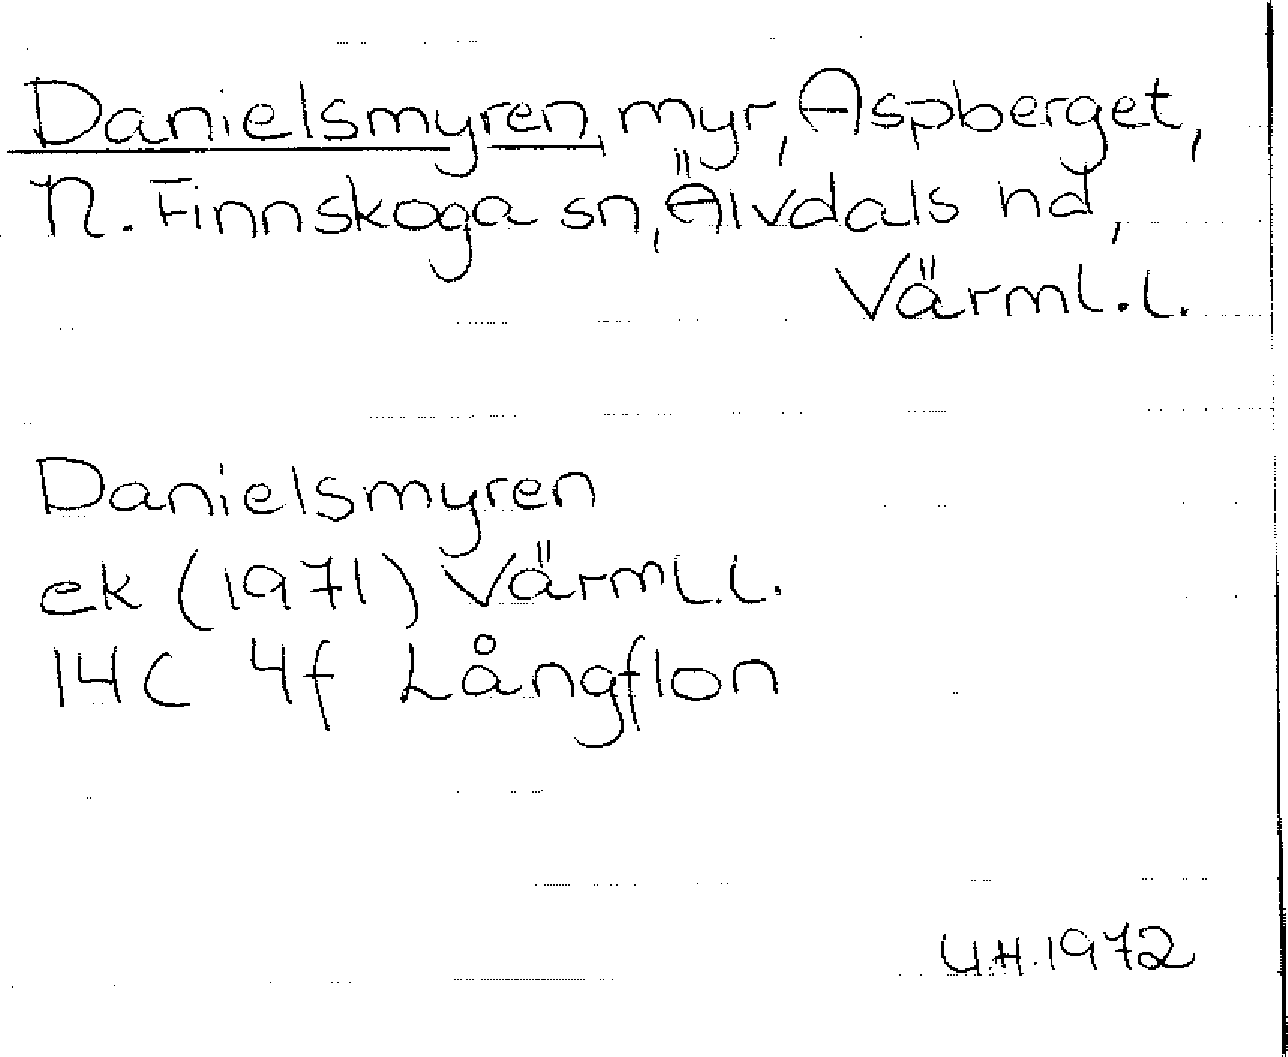 Danielsmyren, myr, Aspberget,
N. Finnskoga sn, Älvdals hd,
Värml.l.
Danielsmyren
ek (1971) Värml.l.
14C 4f Långflon
U.H. 1972